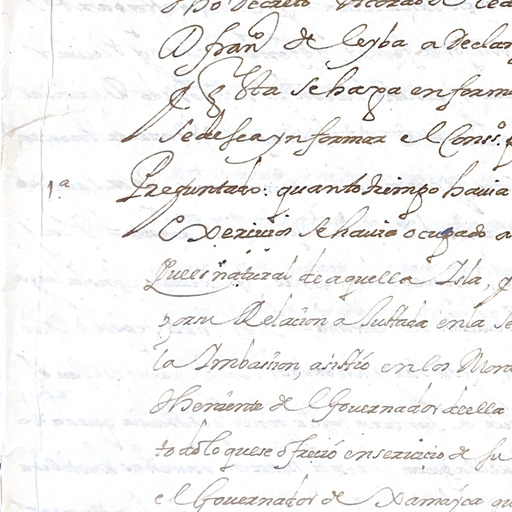 D fran.co de leyba a declar
q esta se haga en forma
se desea ynformar el Cons.o
1.a
Preguntado: quanto tiempo hauia
Exerçiçios se hauia ocupado a
Que es natural de aquella Isla, q
por su Relacion a Justada en la
la Imbasion, asistió en los Mon
theniente de Gouernador de ella
todo lo que se ofreció en seruicio de su
el Gouernador de Xamayca